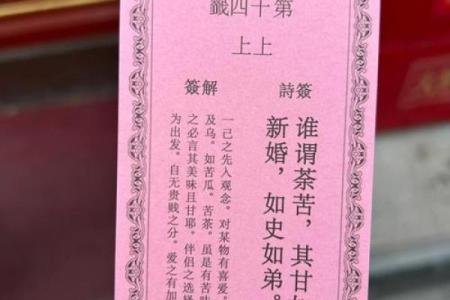 第十四籤
上上
詩簽
谁谓荼苦，其甘
新婚，如史如弟。
簽解
一己之先入观念。对某物有喜爱。
及乌。如苦瓜。苦茶。虽是有苦味
之必言其美味且甘耶。伴侣之选择
为出发。自无贵贱之分。爱之有加